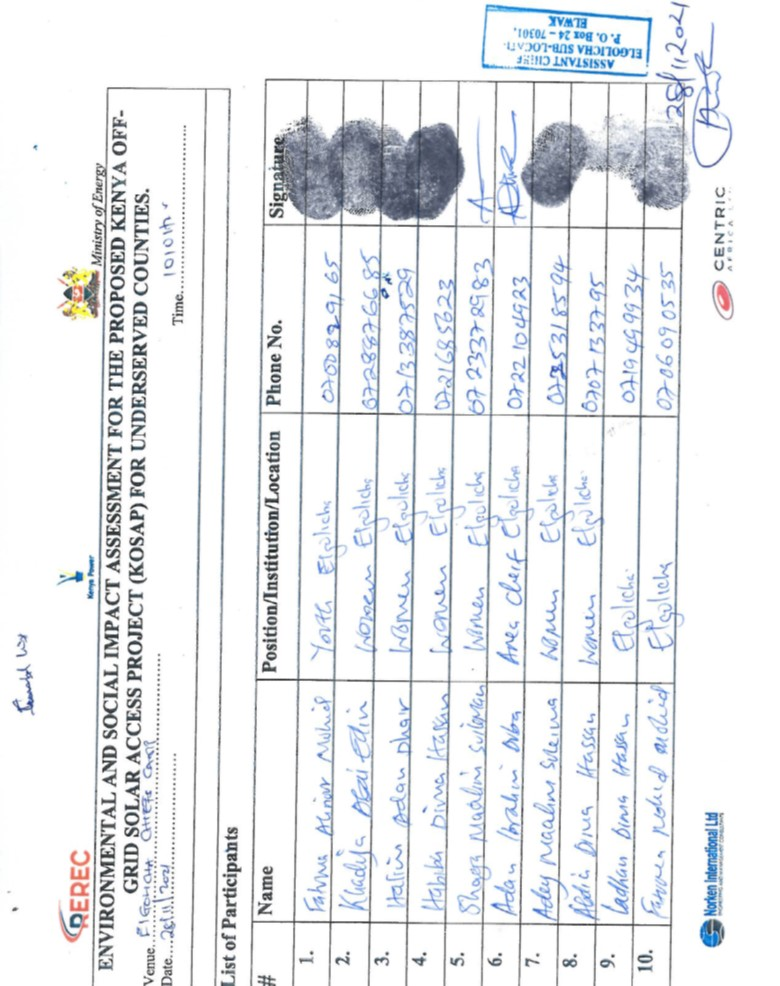 REREC
Kenya Power
Ministry of Energy
ENVIRONMENTAL AND SOCIAL IMPACT ASSESSMENT FOR THE PROPOSED KENYA OFF-
GRID SOLAR ACCESS PROJECT (KOSAP) FOR UNDERSERVED COUNTIES.
Venue... ELGOLICHA CHIEFS CAMP
Date... 28/11/2021 Time...
List of Participants
# Name Position/Institution/Location Phone No. Signature
1. Mohid Youth Elgolicha 0700829165
2. Khadija Abdi Edin Women Elgolicha 0728876685
3. Halima Adan Women Elgolicha 0713387529
4. Habiba Dima Hassan Women Elgolicha 0721685623
5. Maalim Suleiman Women Elgolicha 0723372983
6. Adan Ibrahim Area cheif Elgolicha 0722104923
7. Adey Maalim Women Elgolicha 0725318594
8. Dima Hassan Women Elgolicha 0707133795
9. Dima Hassan Elgolicha 0719499934
10. Mohid Elgolicha 0706090535
ASSISTANT CHIEF
ELGOLICHA SUB-LOCATI
P. O. Box 24 - 70301,
ELWAK
28/11/2021
Norken International Ltd
CENTRIC
AFRICA LTD